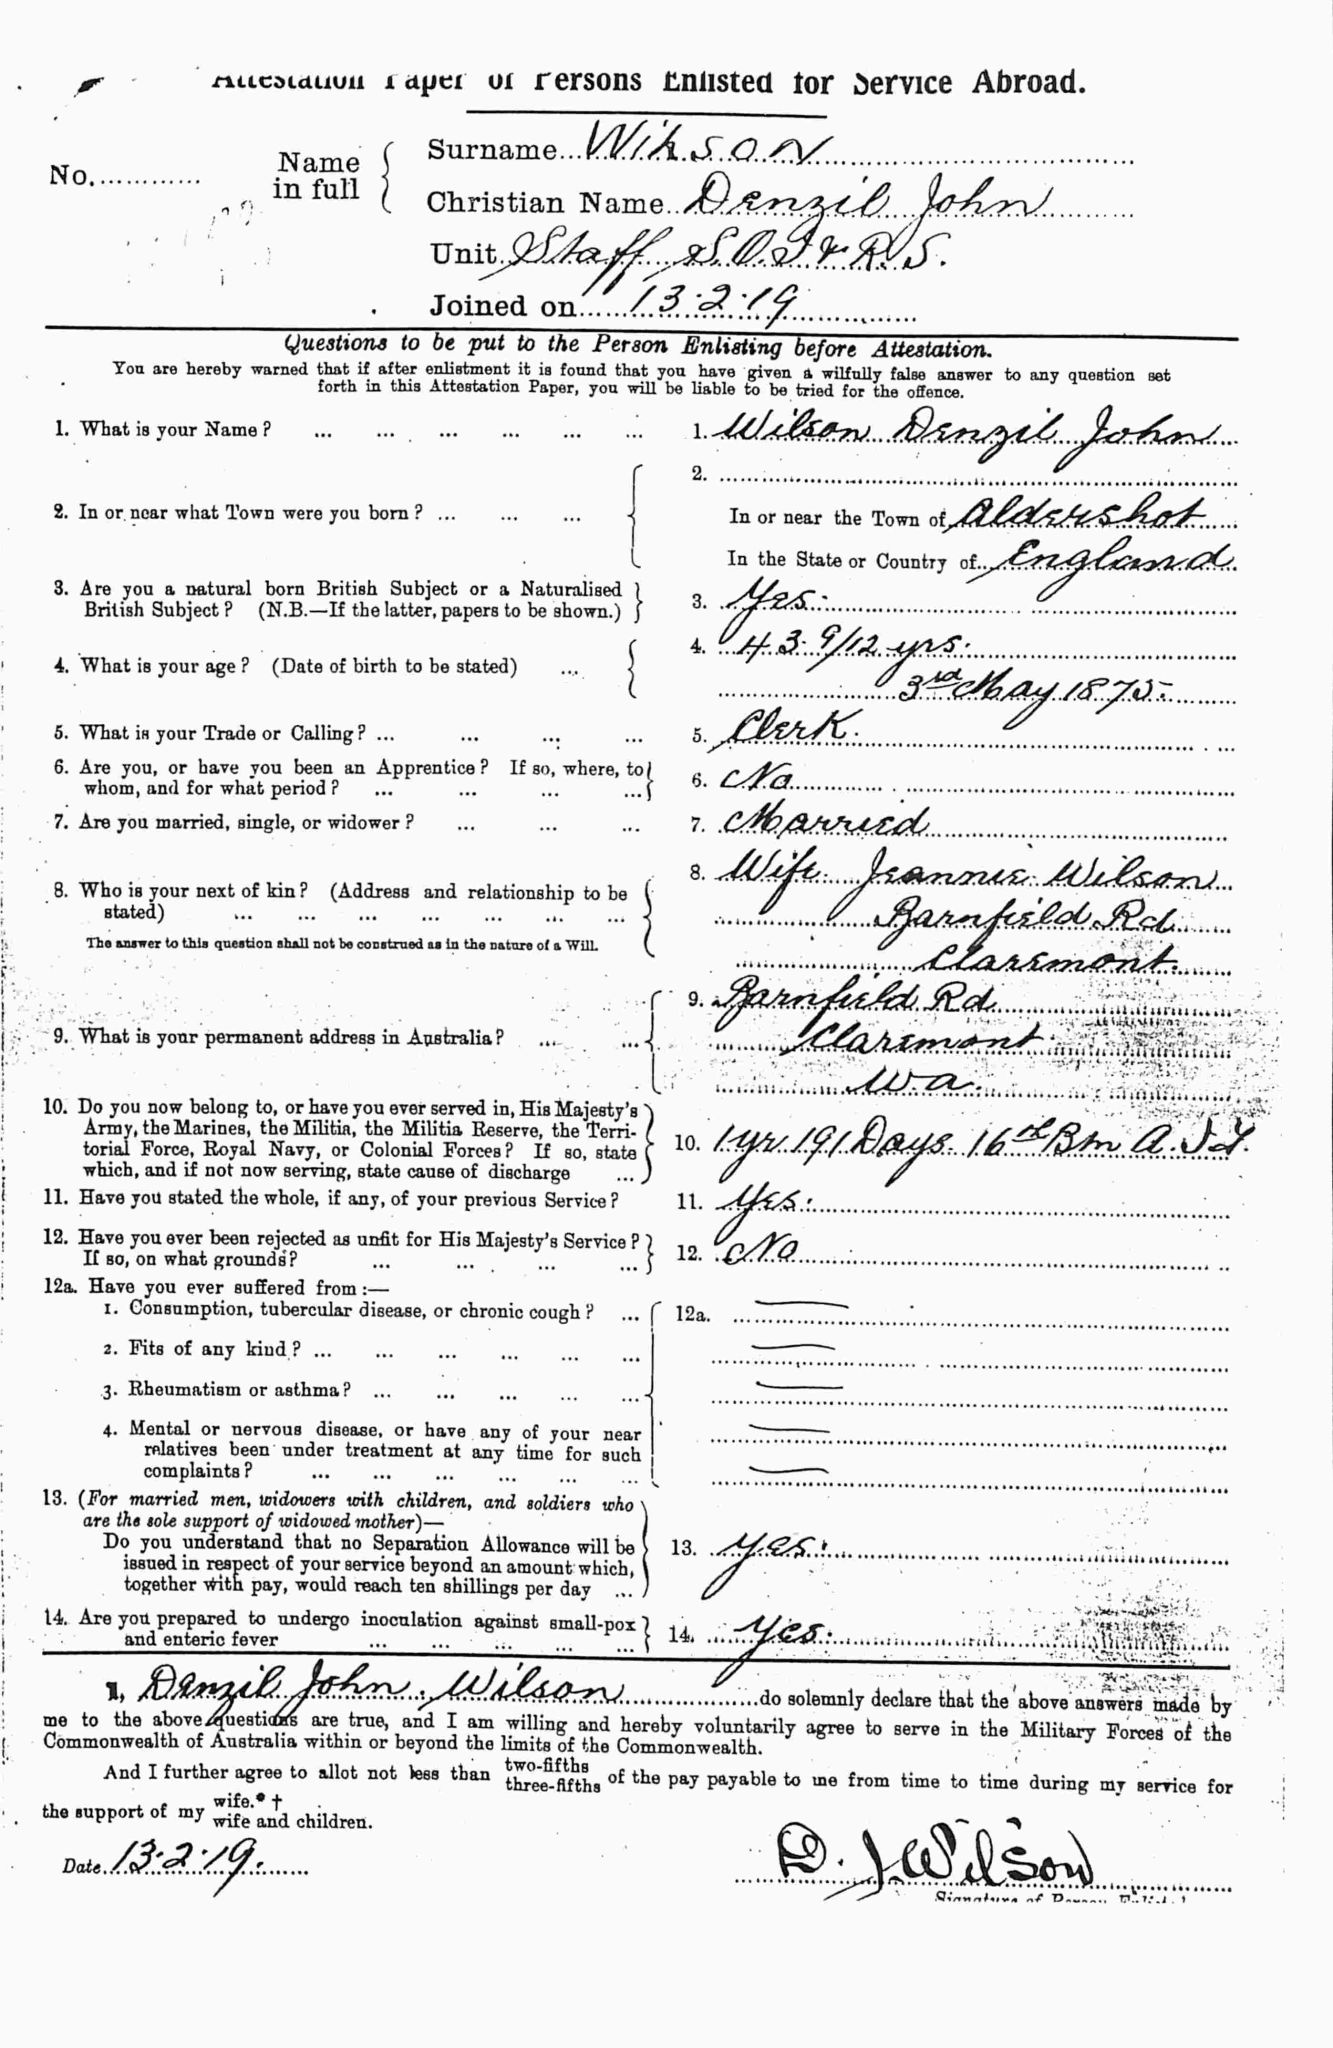 Attestation Paper of Persons Enlisted for Service Abroad.
No.............
Name in full
Surname Wilson
Christian Name Denzil John
Unit Staff S.O.I & R.S.
Joined on 13.2.19
Questions to be put to the Person Enlisting before Attestation.
You are hereby warned that if after enlistment it is found that you have given a wilfully false answer to any question set
forth in this Attestation Paper, you will be liable to be tried for the offence.
1. What is your Name? ... ... ... ... ... ... 1. Wilson Denzil John
2.
2. In or near what Town were you born? ... ... ... In or near the Town of Aldershot
In the State or Country of England
3. Are you a natural born British Subject or a Naturalised
British Subject? (N.B.—If the latter, papers to be shown.) 3. Yes.
4. What is your age? (Date of birth to be stated) ... 4. 43 9/12 yrs.
3rd May 1875.
5. What is your Trade or Calling? ... ... ... ... 5. Clerk.
6. Are you, or have you been an Apprentice? If so, where, to
whom, and for what period? ... ... ... ... 6. No
7. Are you married, single, or widower? ... ... ... 7. Married
8. Who is your next of kin? (Address and relationship to be 8. Wife Jeannie Wilson
stated) ... ... ... ... ... ... ... Barnfield Rd
The answer to this question shall not be construed as in the nature of a Will.
Claremont.
9. Barnfield Rd
9. What is your permanent address in Australia? ... ... Claremont
W.a.
10. Do you now belong to, or have you ever served in, His Majesty's
Army, the Marines, the Militia, the Militia Reserve, the Terri-
torial Force, Royal Navy, or Colonial Forces? If so, state 10. 1 yr. 191 Days. 16th Bn A.I.F.
which, and if not now serving, state cause of discharge ...
11. Have you stated the whole, if any, of your previous Service? 11. Yes.
12. Have you ever been rejected as unfit for His Majesty's Service?
If so, on what grounds? ... ... ... ... 12. No
12a. Have you ever suffered from:—
1. Consumption, tubercular disease, or chronic cough? ... 12a. —
2. Fits of any kind? ... ... ... ... ... ... —
3. Rheumatism or asthma? ... ... ... ... ... —
4. Mental or nervous disease, or have any of your near —
relatives been under treatment at any time for such
complaints? ... ... ... ... ... ... —
13. (For married men, widowers with children, and soldiers who
are the sole support of widowed mother)—
Do you understand that no Separation Allowance will be 13. Yes.
issued in respect of your service beyond an amount which,
together with pay, would reach ten shillings per day ...
14. Are you prepared to undergo inoculation against small-pox
and enteric fever ... ... ... ... ... 14. Yes.
I, Denzil John Wilson do solemnly declare that the above answers made by
me to the above questions are true, and I am willing and hereby voluntarily agree to serve in the Military Forces of the
Commonwealth of Australia within or beyond the limits of the Commonwealth.
And I further agree to allot not less than two-fifths three-fifths of the pay payable to me from time to time during my service for
the support of my wife.*† wife and children.
Date 13.2.19.
D. J. Wilson
Signature of Person Enlisted